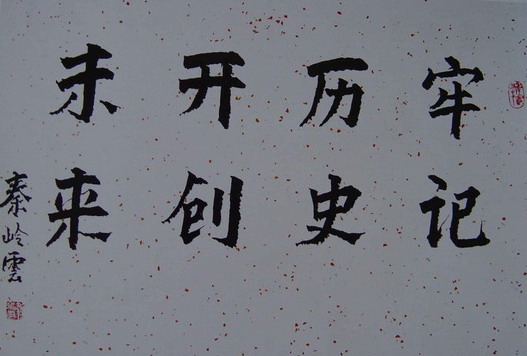 牢记
历史
开创
未来
秦岭雲